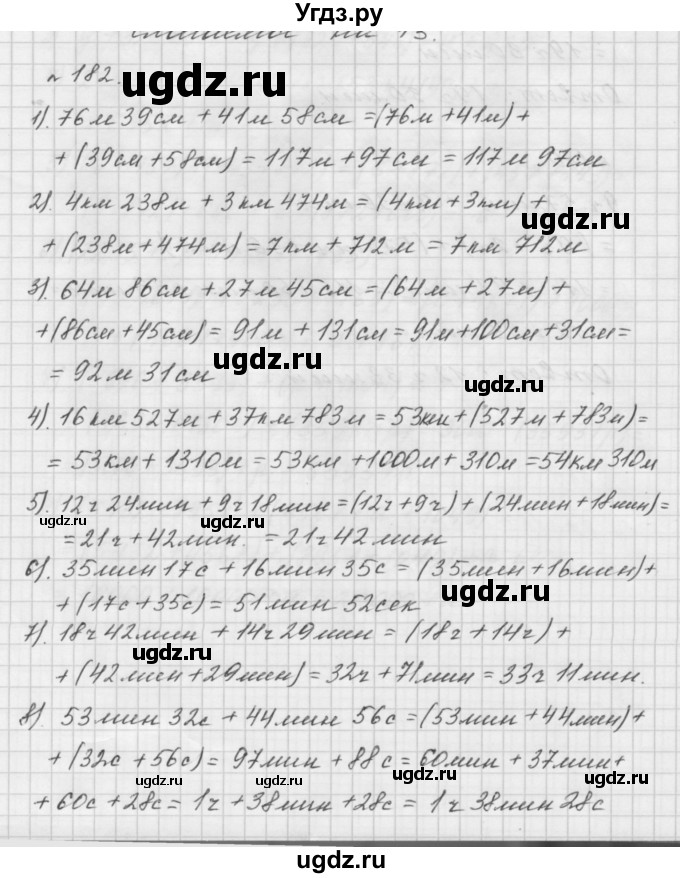 Угдз.ру
на 13.
№ 182.
ugdz.ru
1). 76м 39см + 41м 58см = (76м + 41м) +
+ (39см + 58см) = 117м + 97см = 117м 97см
2). 4км 238м + 3км 474м = (4км + 3км) +
ugdz.ru
+ (238м + 474м) = 7км + 712м = 7км 712м
3). 64м 86см + 27м 45см = (64м + 27м) +
+ (86см + 45см) = 91м + 131см = 91м + 100см + 31см =
ugdz.ru
= 92м 31см
4). 16км 527м + 37км 783м = 53км + (527м + 783м) =
= 53км + 1310м = 53км + 1000м + 310м = 54км 310м
5). 12ч 24мин + 9ч 18мин = (12ч + 9ч) + (24мин + 18мин) =
ugdz.ru ugdz.ru ugdz.ru
= 21ч + 42мин. = 21ч 42мин
6). 35мин 17с + 16мин 35с = (35мин + 16мин) +
ugdz.ru
+ (17с + 35с) = 51мин 52сек
7). 18ч 42мин + 14ч 29мин = (18ч + 14ч) +
ugdz.ru
+ (42мин + 29мин) = 32ч + 71мин = 33ч 11мин.
8). 53мин 32с + 44мин 56с = (53мин + 44мин) +
+ (32с + 56с) = 97мин + 88с = 60мин + 37мин +
ugdz.ru ugdz.ru ugdz.ru
+ 60с + 28с = 1ч + 38мин + 28с = 1ч 38мин 28с
ugdz.ru